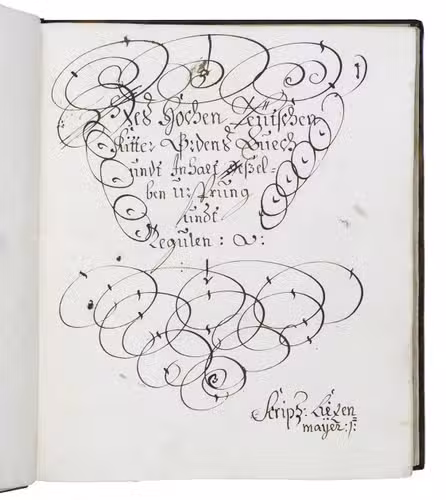 Des Hochen Teütschen
Ritter Ordens Buech
undt Inhalt dessel=
ben ursprung
undt
Regulen : 
Scrips: Liexen=
mayer :/: